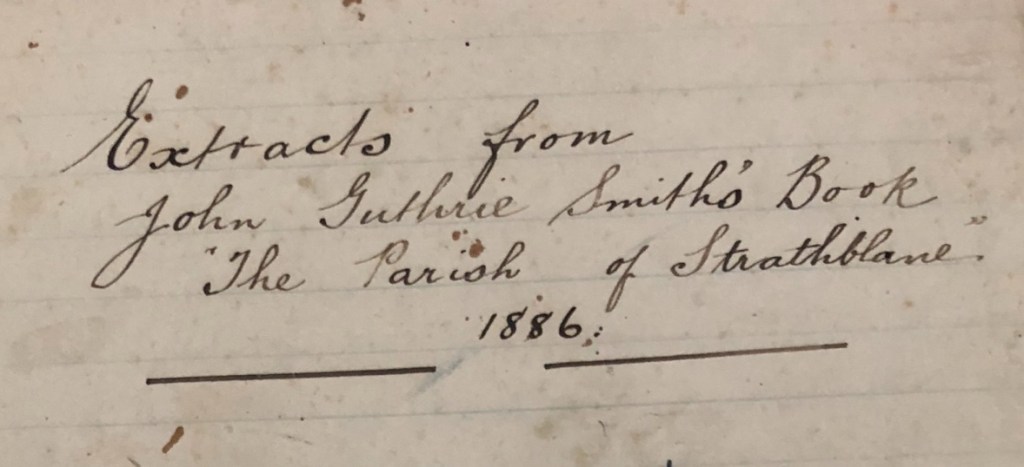 Extracts from
John Guthrie Smith's Book
"The Parish of Strathblane".
1886.